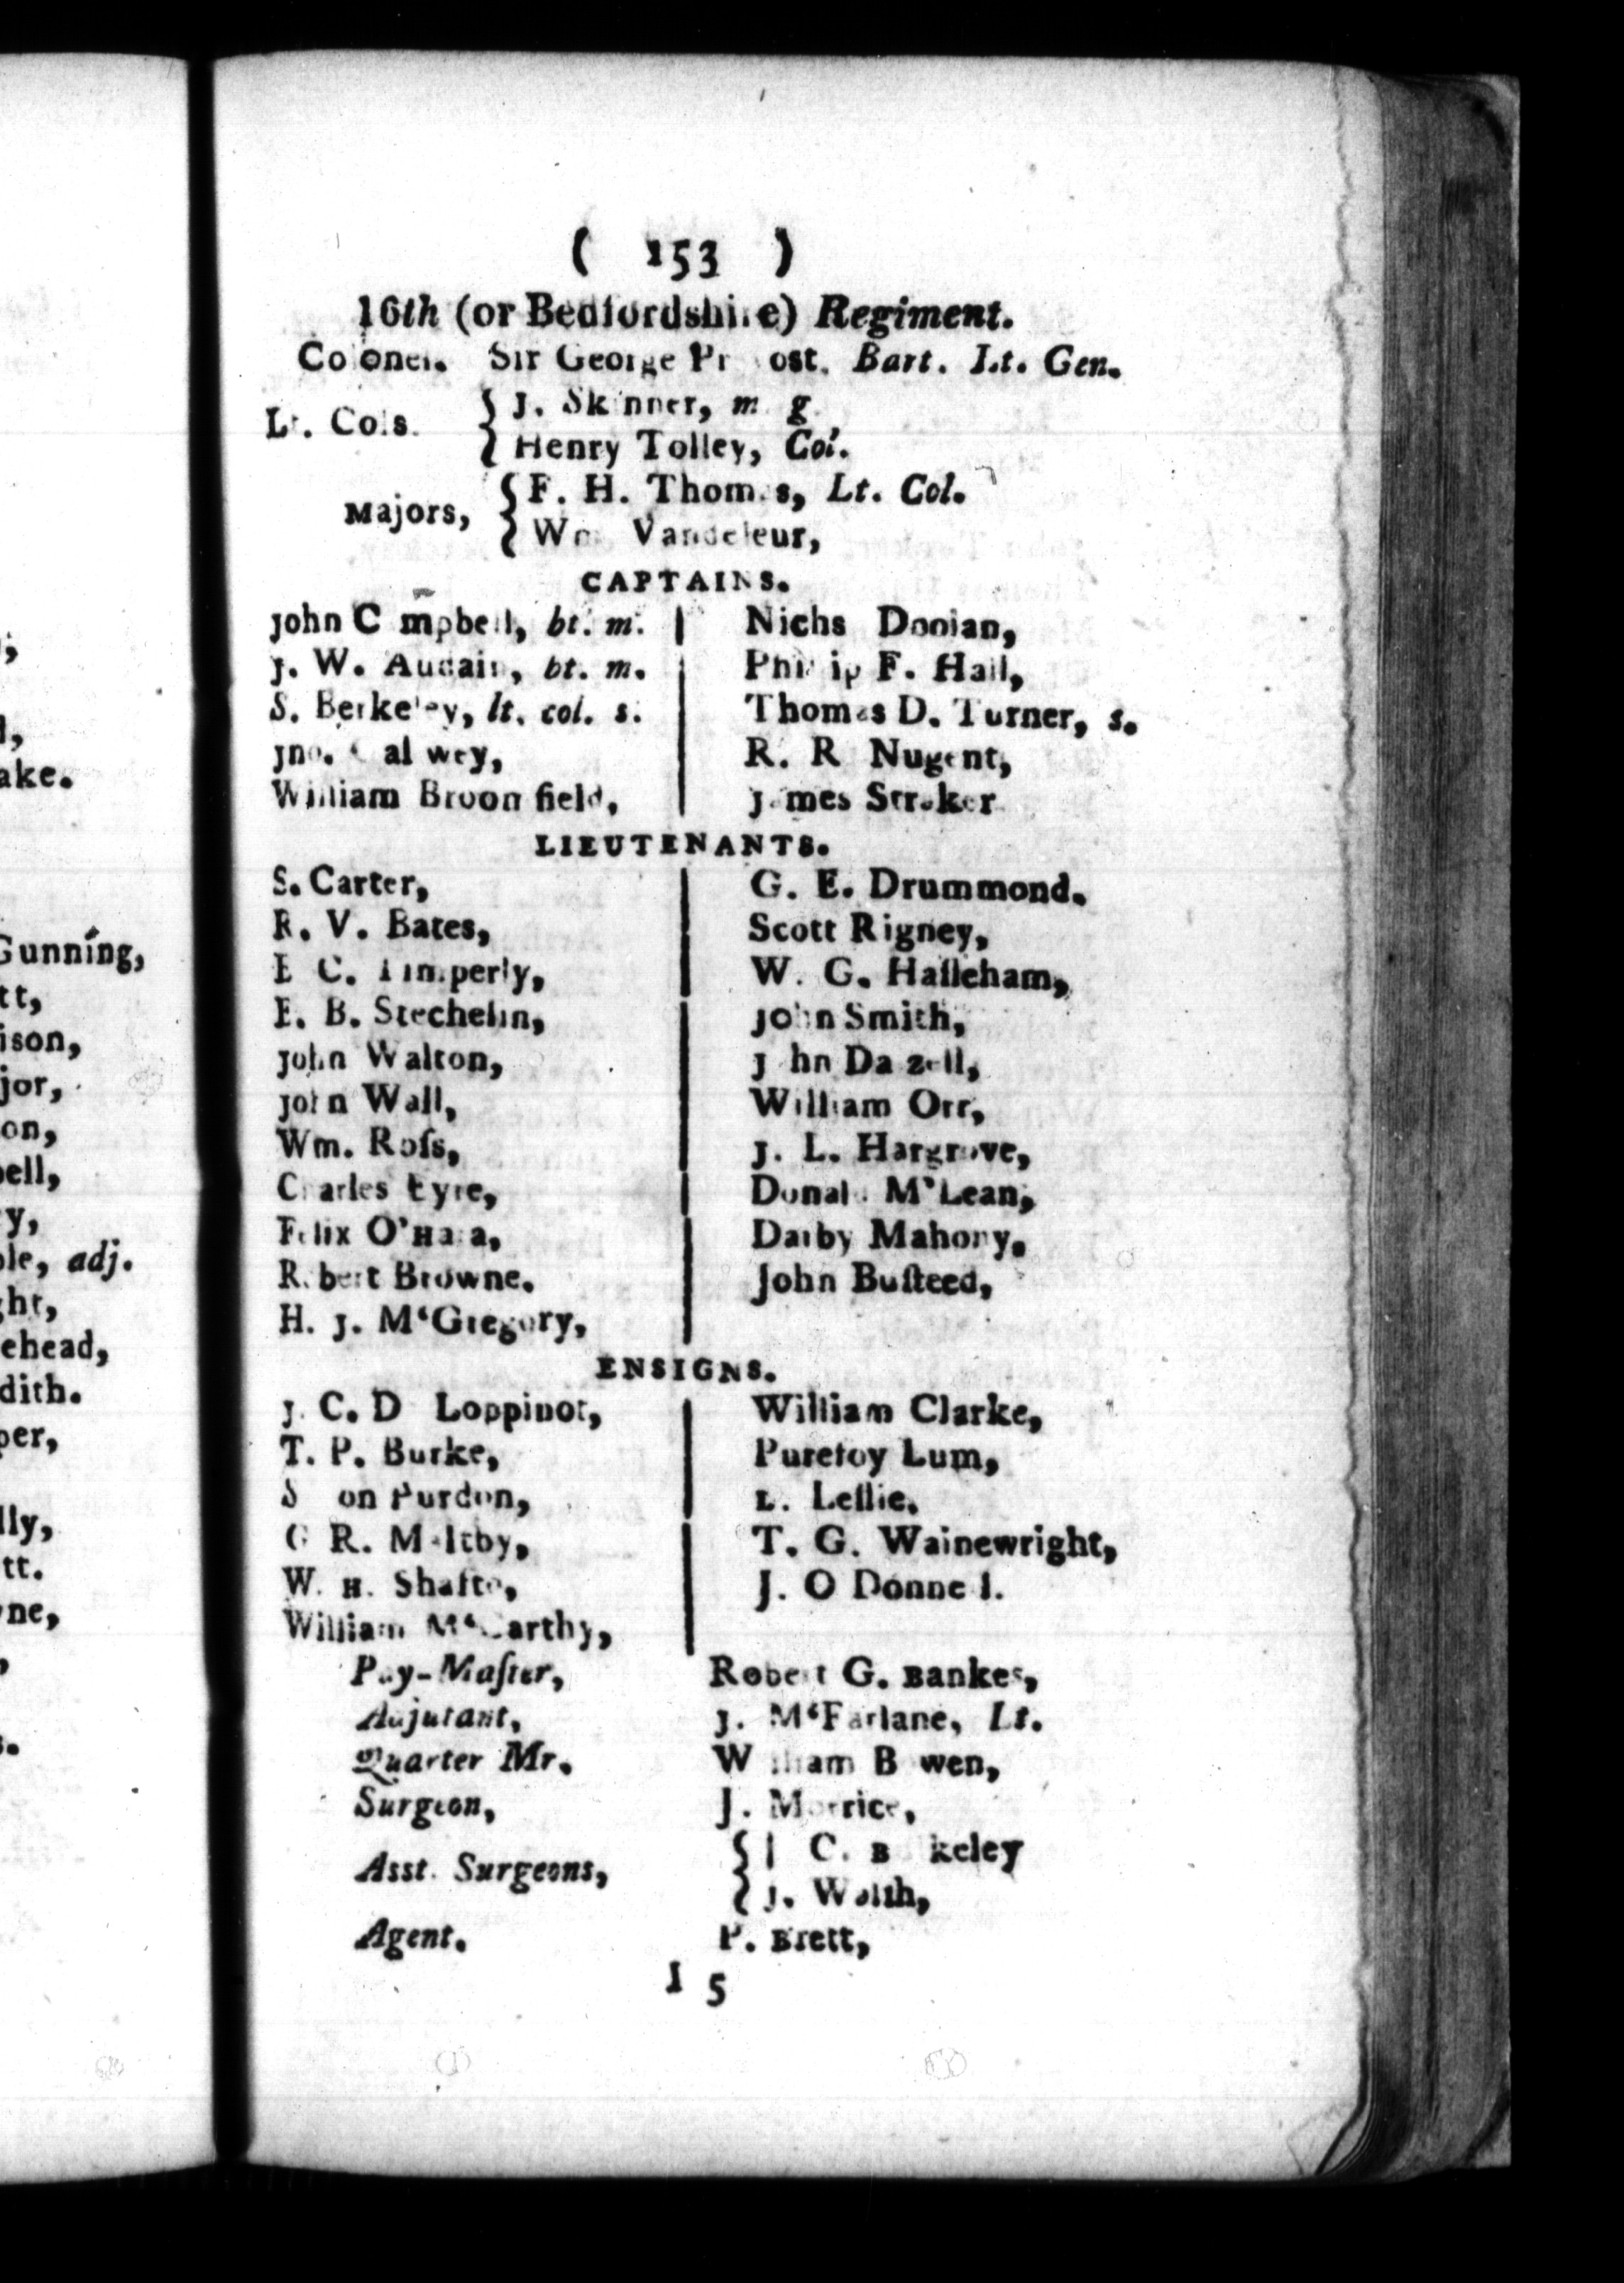 ( 153 )
16th (or Bedfordshire) Regiment.
Colonel. Sir George Prevost. Bart. Lt. Gen.
Lt. Cols.
J. Skinner, m g
Henry Tolley, Col.
Majors,
F. H. Thomas, Lt. Col.
Wm. Vandeleur,
CAPTAINS.
John Campbell, bt. m.
J. W. Audain, bt. m.
S. Berkeley, lt. col. s.
Jno. Galwey,
William Broomfield,
Nichs Donian,
Philip F. Hall,
Thomas D. Turner, s.
R. R Nugent,
James Straker
LIEUTENANTS.
S. Carter,
R. V. Bates,
E C. Timperly,
E. B. Stechelin,
John Walton,
John Wall,
Wm. Roſs,
Charles Eyre,
Felix O'Hara,
Robert Browne.
H. J. M‘Gregory,
G. E. Drummond.
Scott Rigney,
W. G. Haſleham,
John Smith,
John Dalzell,
William Orr,
J. L. Hargrove,
Donald M’Lean,
Darby Mahony,
John Buſteed,
ENSIGNS.
J. C. D Loppinot,
T. P. Burke,
S on Purdon,
G R. Maltby,
W. H. Shafto,
William M‘Carthy,
William Clarke,
Purefoy Lum,
L. Leſlie.
T. G. Wainewright,
J. O Donnel.
Pay-Maſter,
Robert G. Bankes,
Adjutant,
J. M‘Farlane, Lt.
Quarter Mr.
William Bowen,
Surgeon,
J. Morrice,
Asst. Surgeons,
J C. Berkeley
J. Walsh,
Agent.
P. Brett,
I 5
ake.
Gunning,
tt,
ison,
jor,
on,
bell,
y,
ole, adj.
ght,
ehead,
dith.
per,
lly,
tt.
ne,